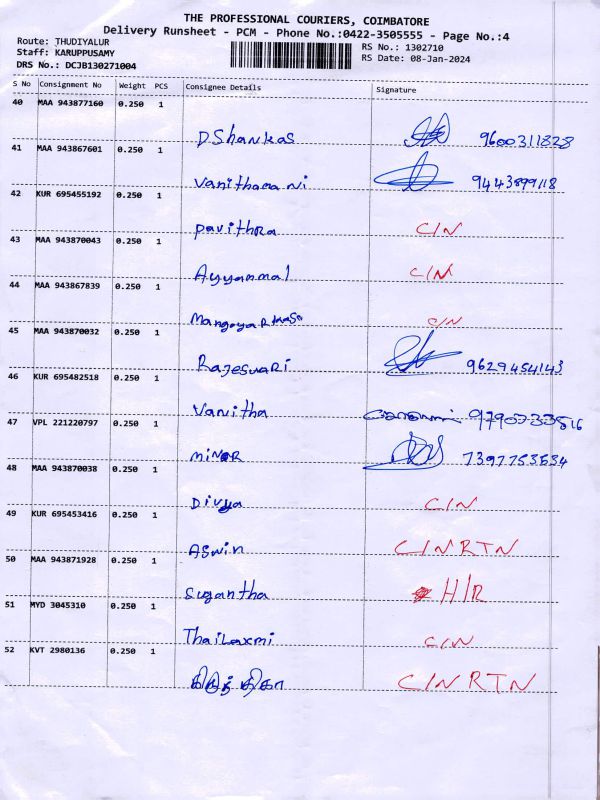 THE PROFESSIONAL COURIERS, COIMBATORE
Delivery Runsheet - PCM - Phone No.:0422-3505555 - Page No.:4
Route: THUDIYALUR
Staff: KARUPPUSAMY
DRS No.: DCJB130271004
RS No.: 1302710
RS Date: 08-Jan-2024
S No Consignment No Weight PCS Consignee Details Signature
40 MAA 943877160 0.250 1
D Shankas 9600311828
41 MAA 943867601 0.250 1
Vanithamani 9443899118
42 KUR 695455192 0.250 1
Pavithra C/N
43 MAA 943870043 0.250 1
Ayyanmal C/N
44 MAA 943867839 0.250 1
C/N
45 MAA 943870032 0.250 1
Rajeswari 9629454143
46 KUR 695482518 0.250 1
Vanitha 9790733516
47 VPL 221220797 0.250 1
minor 7397753534
48 MAA 943870038 0.250 1
Divya C/N
49 KUR 695453416 0.250 1
Aswin C/N RTN
50 MAA 943871928 0.250 1
Sugantha H/R
51 MYD 3045310 0.250 1
Thailaxmi C/N
52 KVT 2980136 0.250 1
C/N RTN